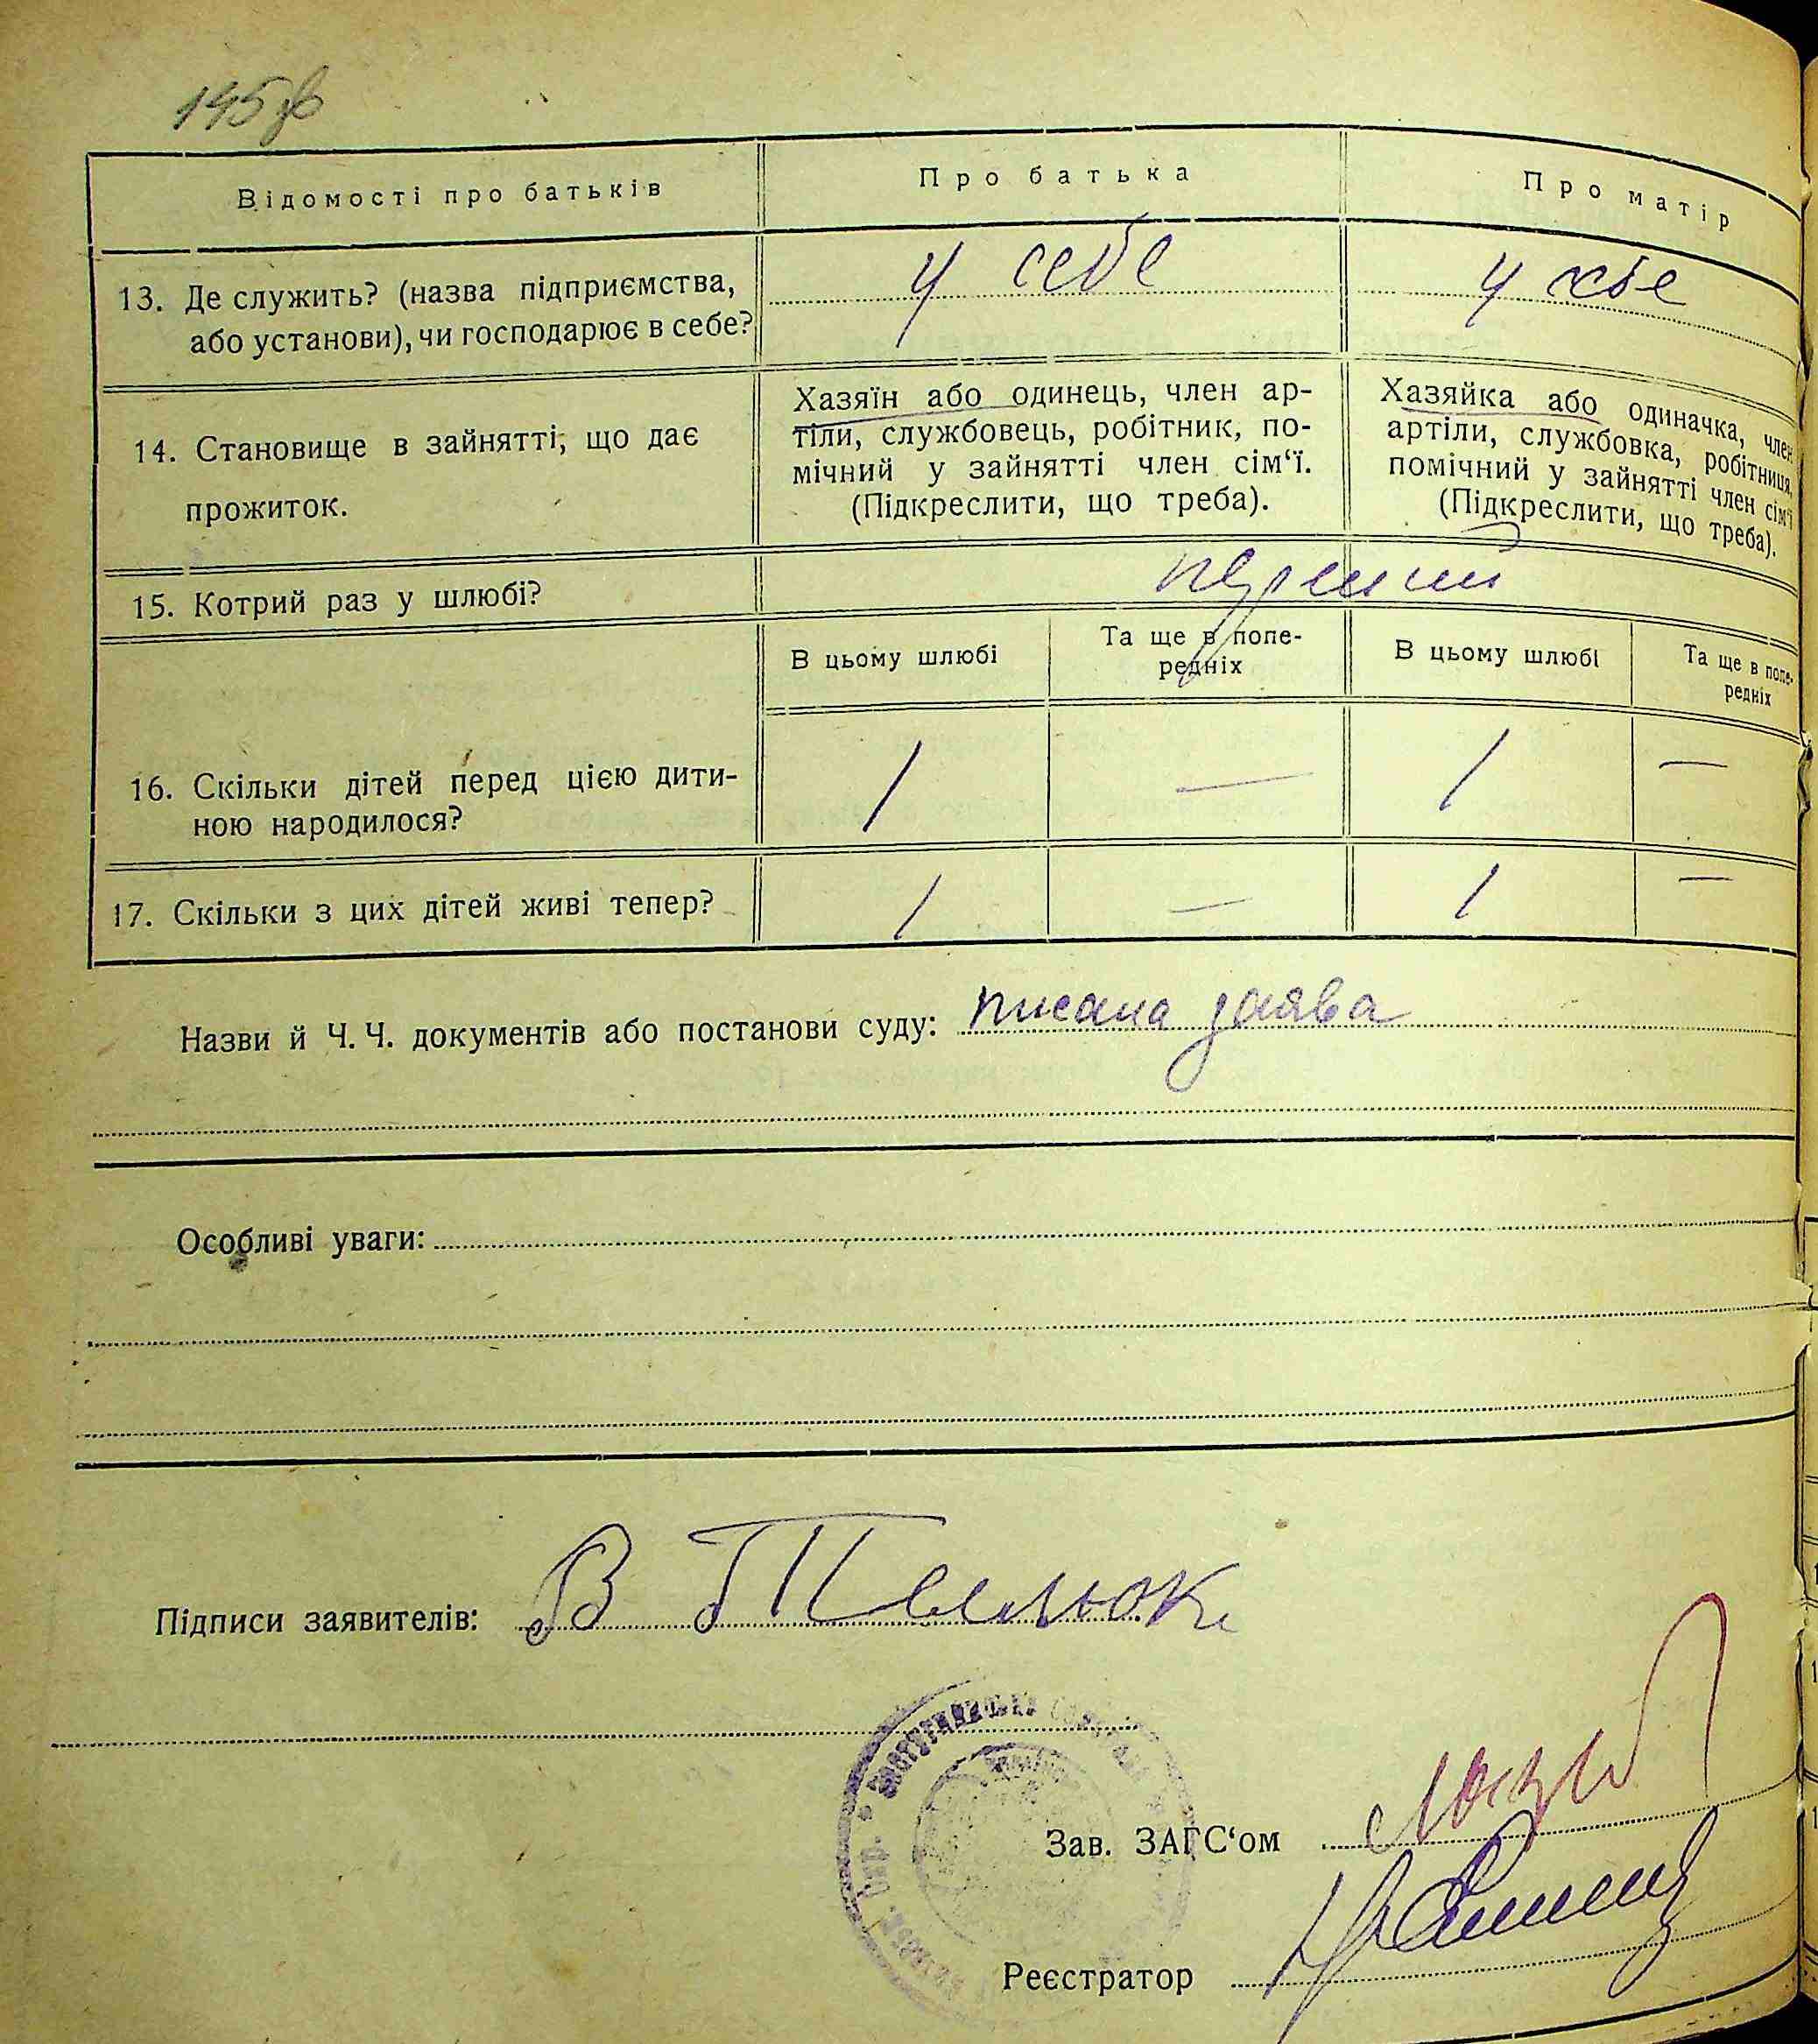 145 зв
Відомості про батьків
Про батька
Про матір
13. Де служить? (назва підприємства,
або установи), чи господарює в себе?
У себе
У себе
14. Становище в зайнятті, що дає
прожиток.
Хазяїн або одинець, член ар-
тіли, службовець, робітник, по-
мічний у зайнятті член сім‘ї.
(Підкреслити, що треба).
Хазяйка або одиначка, член
артіли, службовка, робітниця,
помічний у зайнятті член сім‘ї
(Підкреслити, що треба).
15. Котрий раз у шлюбі?
перший
В цьому шлюбі
Та ще в попе-
редніх
В цьому шлюбі
Та ще в попе-
редніх
16. Скільки дітей перед цією дити-
ною народилося?
1 — 1 —
17. Скільки з цих дітей живі тепер?
1 — 1 —
Назви й Ч. Ч. документів або постанови суду: писана заява
Особливі уваги:
Підписи заявителів: В
Зав. ЗАГС‘ом
Реєстратор